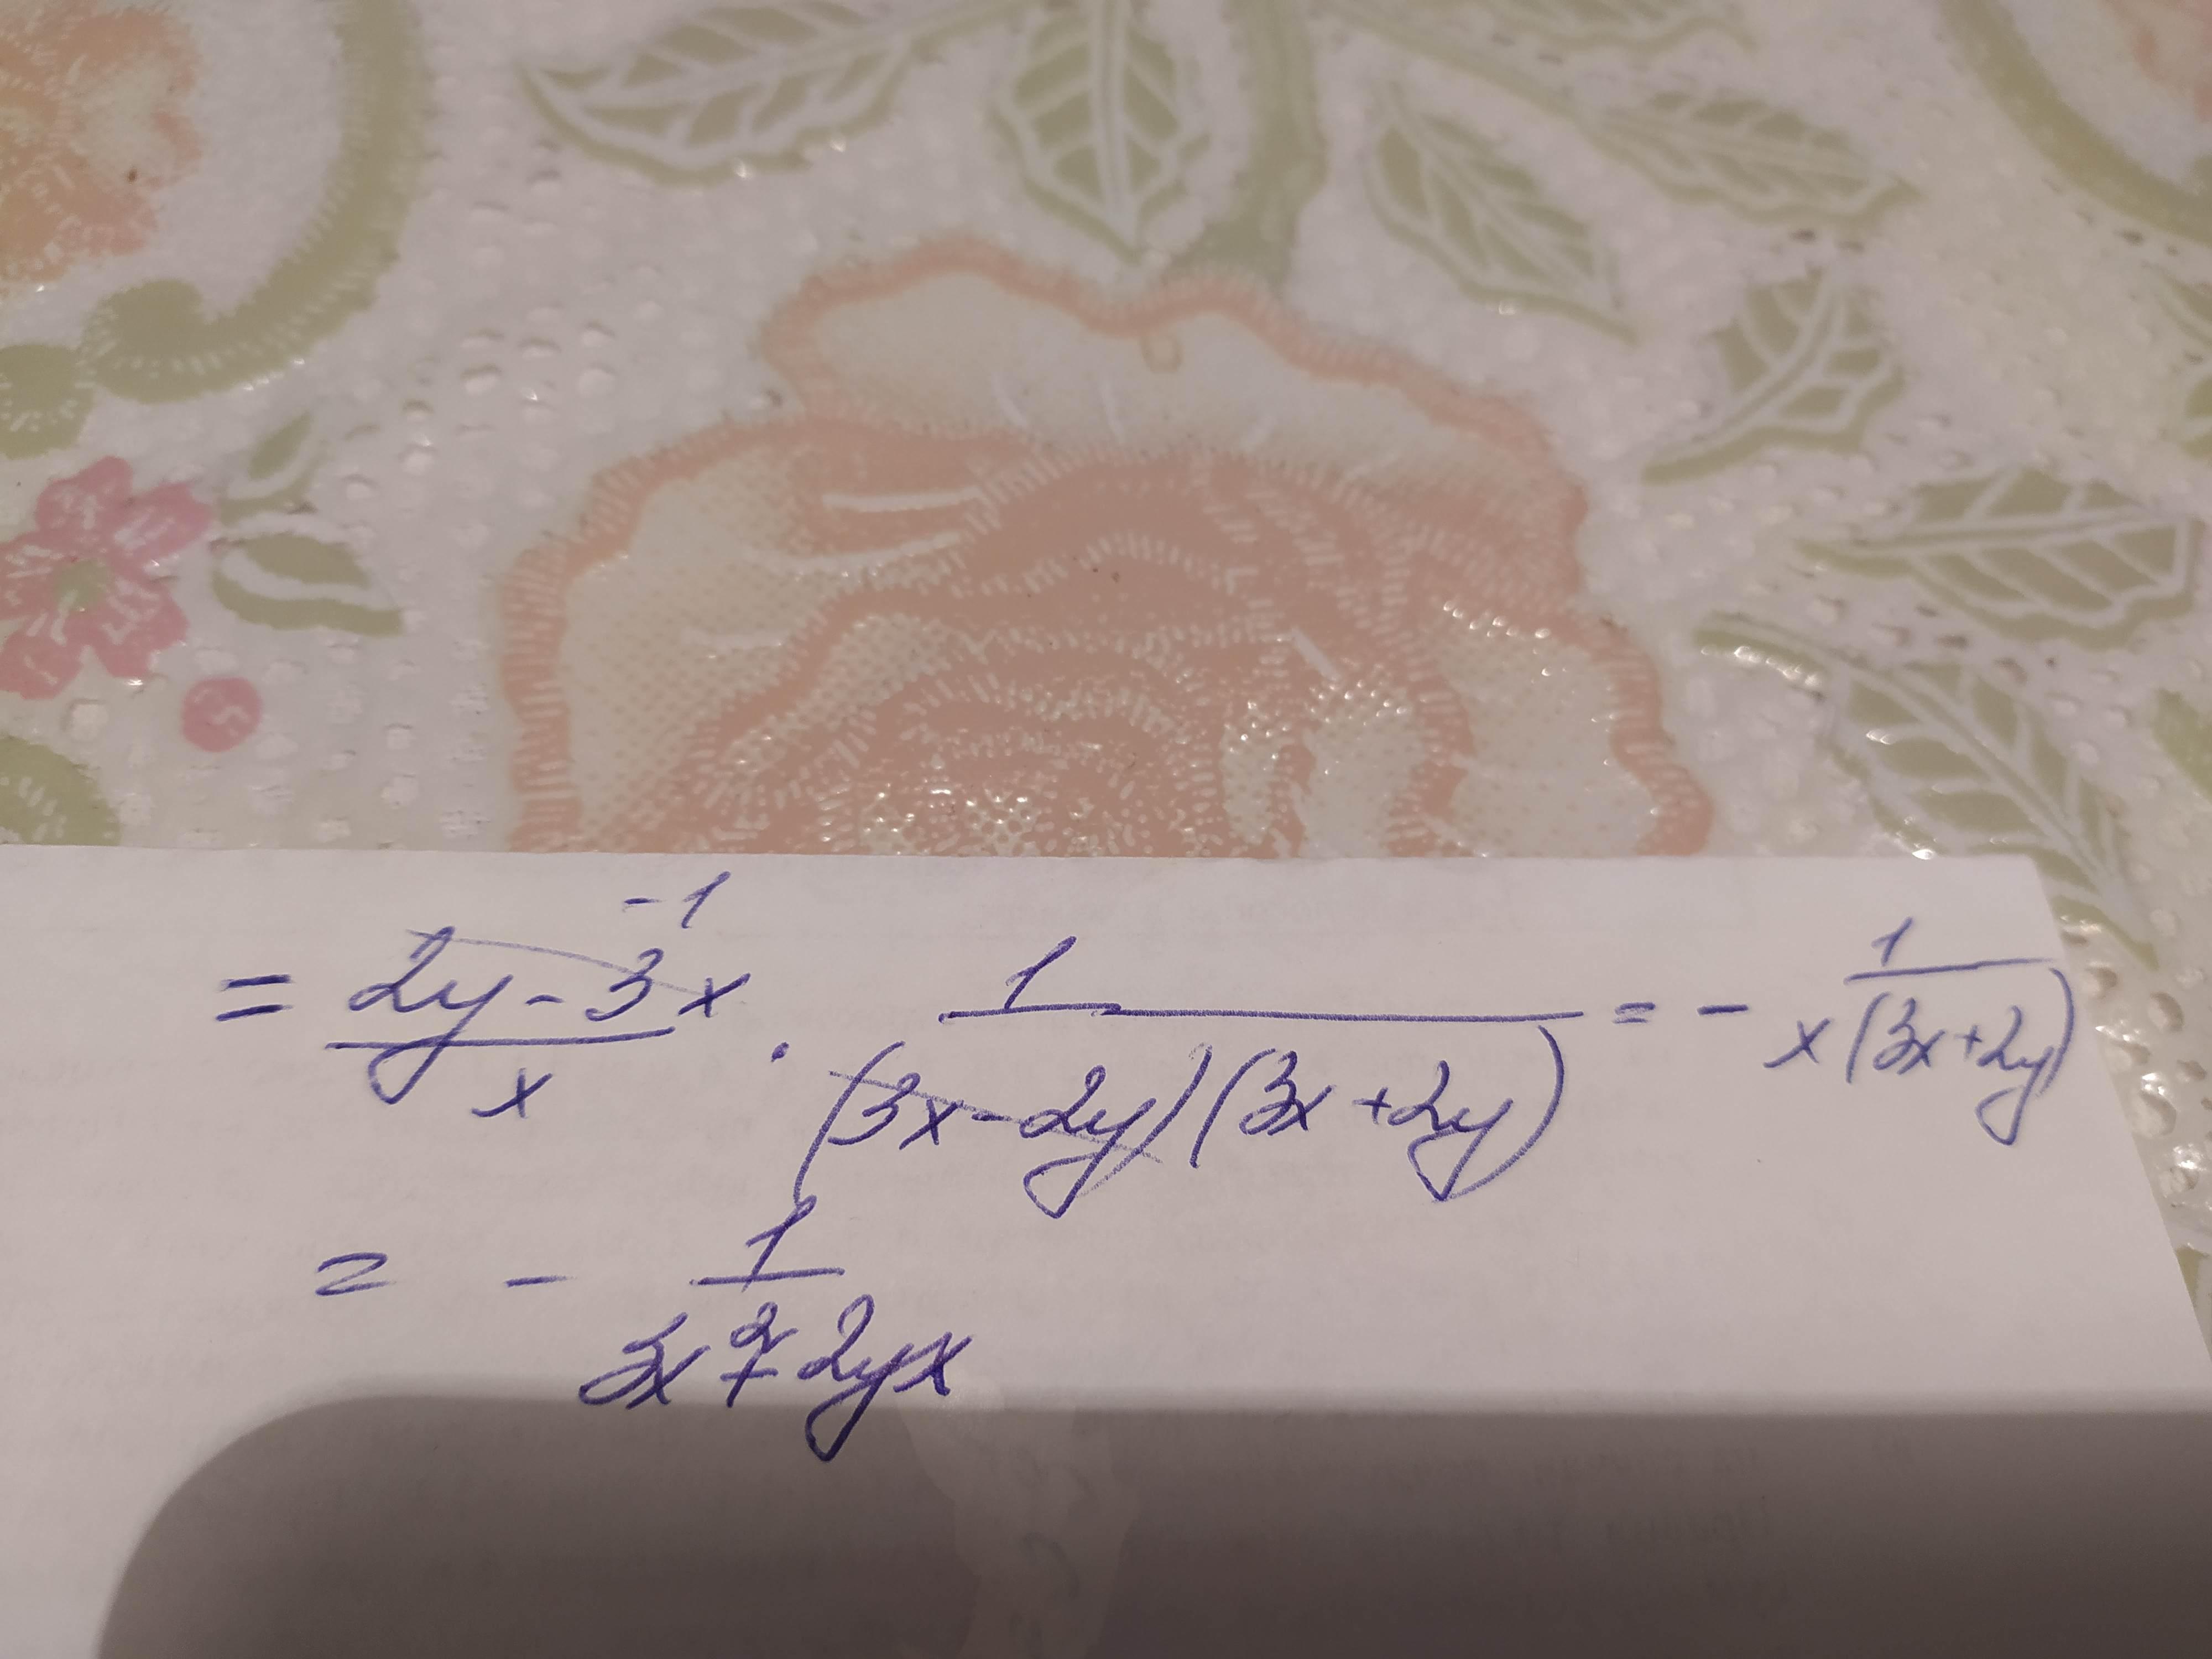 = (2y - 3x)/x · 1/((3x - 2y)(3x + 2y)) = - 1/(x(3x + 2y))
-1
= - 1/(3x² + 2yx)